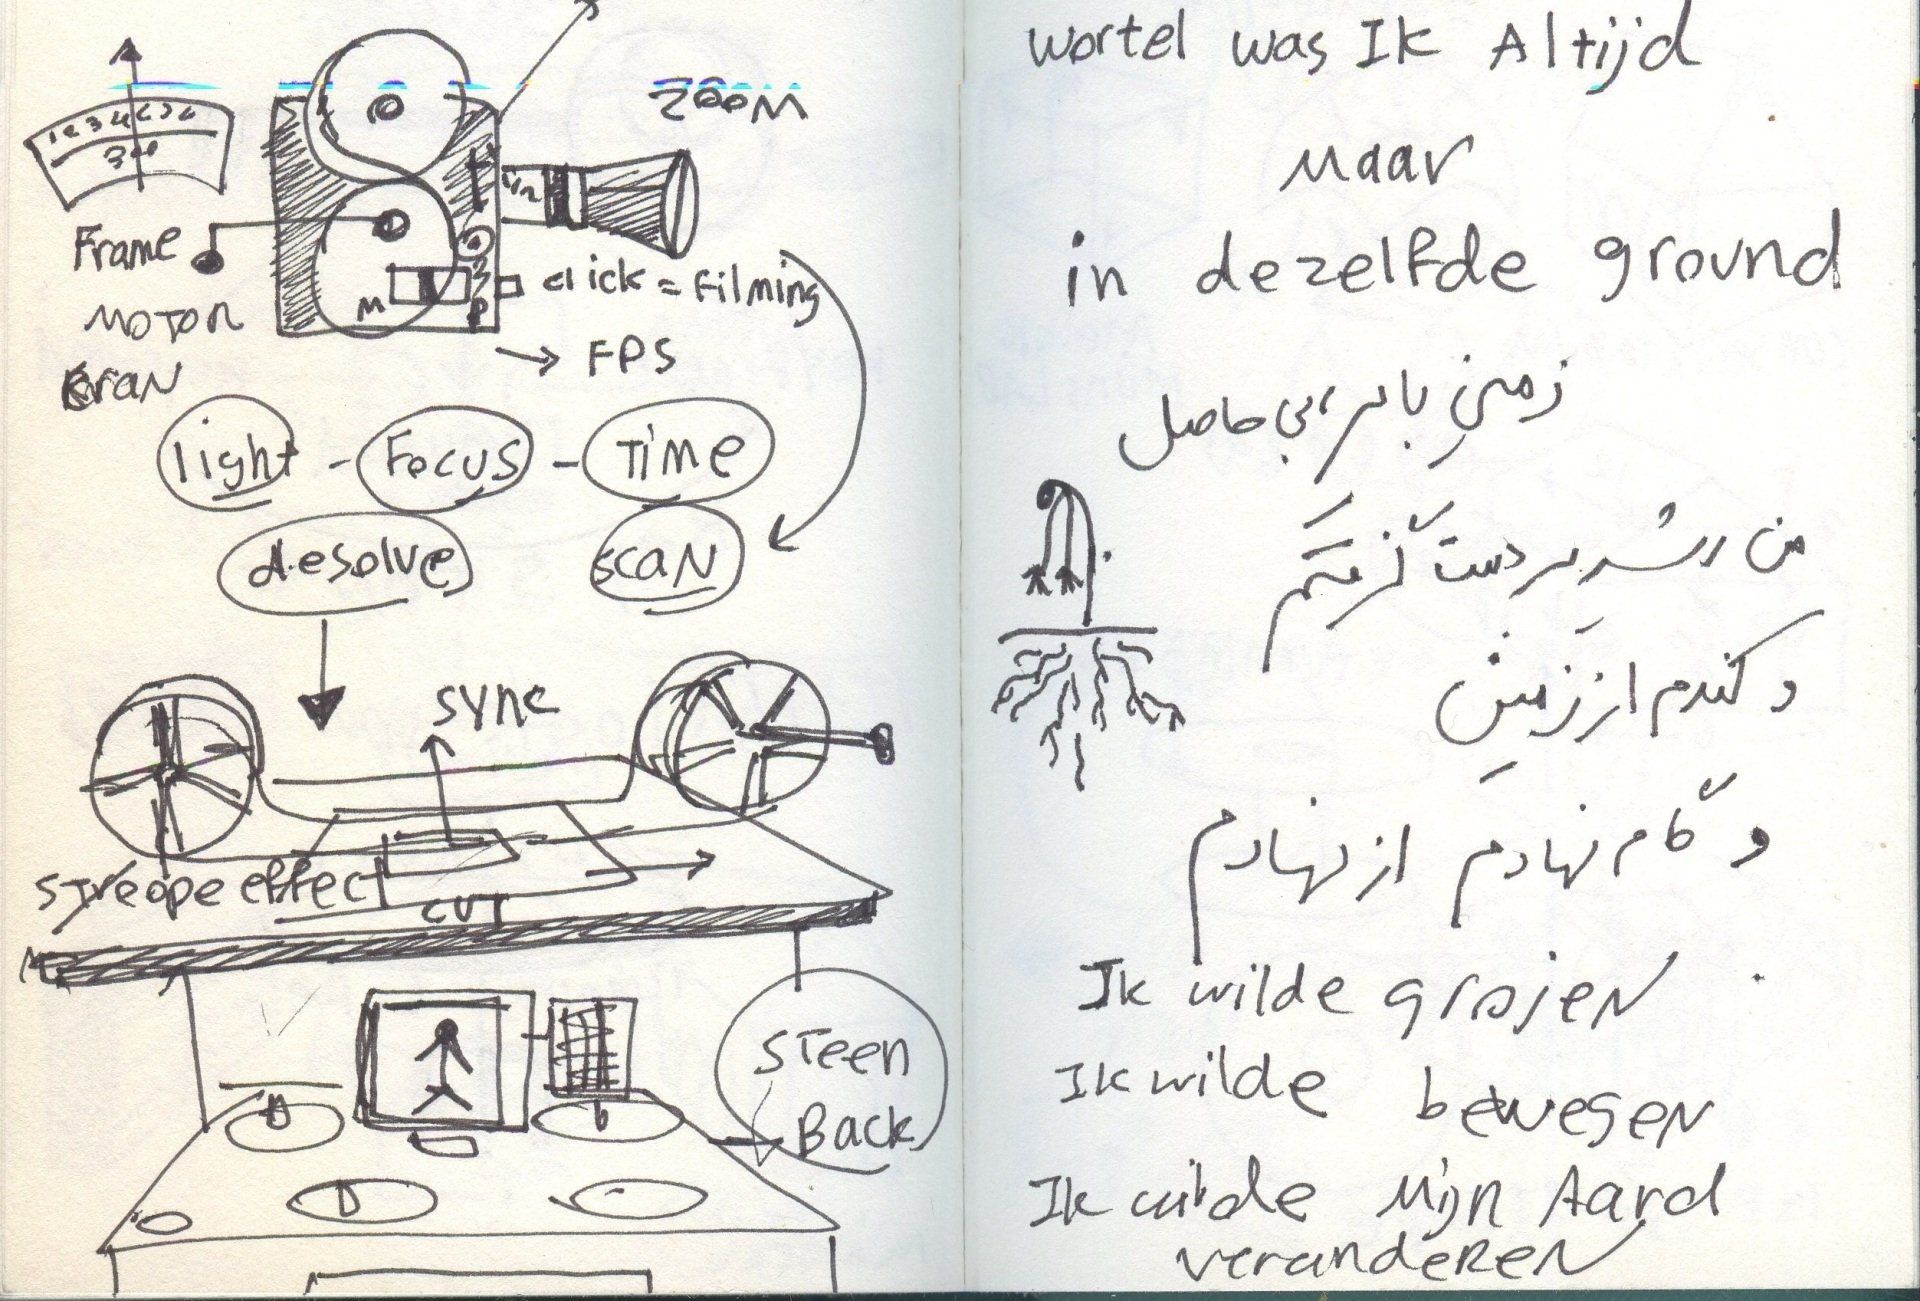 ZOOM
300
Frame
MOTOR
click = Filming
M
FPS
light - Focus - Time
desolve
scan
sync
effect
CUT
STeen
Back
wortel was Ik Altijd
Maar
in dezelfde ground
زمینی بایر بی حاصل
من ریشه بر دست گرفتم
و کندم از زمین
و گام نهادم از نهادم
Ik wilde grojen
Ik wilde bewegen
Ik wilde Mijn Aard
veranderen